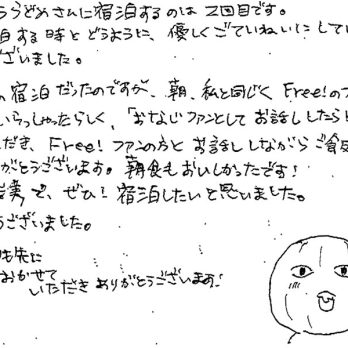 うらうどめさんに宿泊するのは2回目です。
泊する時とどうように、優しくごていねいにしてい
ございました。
の宿泊だったのですが、朝、私と同じく Free!のフ
いらっしゃったらしく、「おなじファンとしてお話ししたらど
だき、Free! ファンの方とお話ししながらご食
がとうございます。朝食もおいしかったです!
で、ぜひ!宿泊したいと思いました。
うございました。
先に
おかせて
いただきありがとうございます!